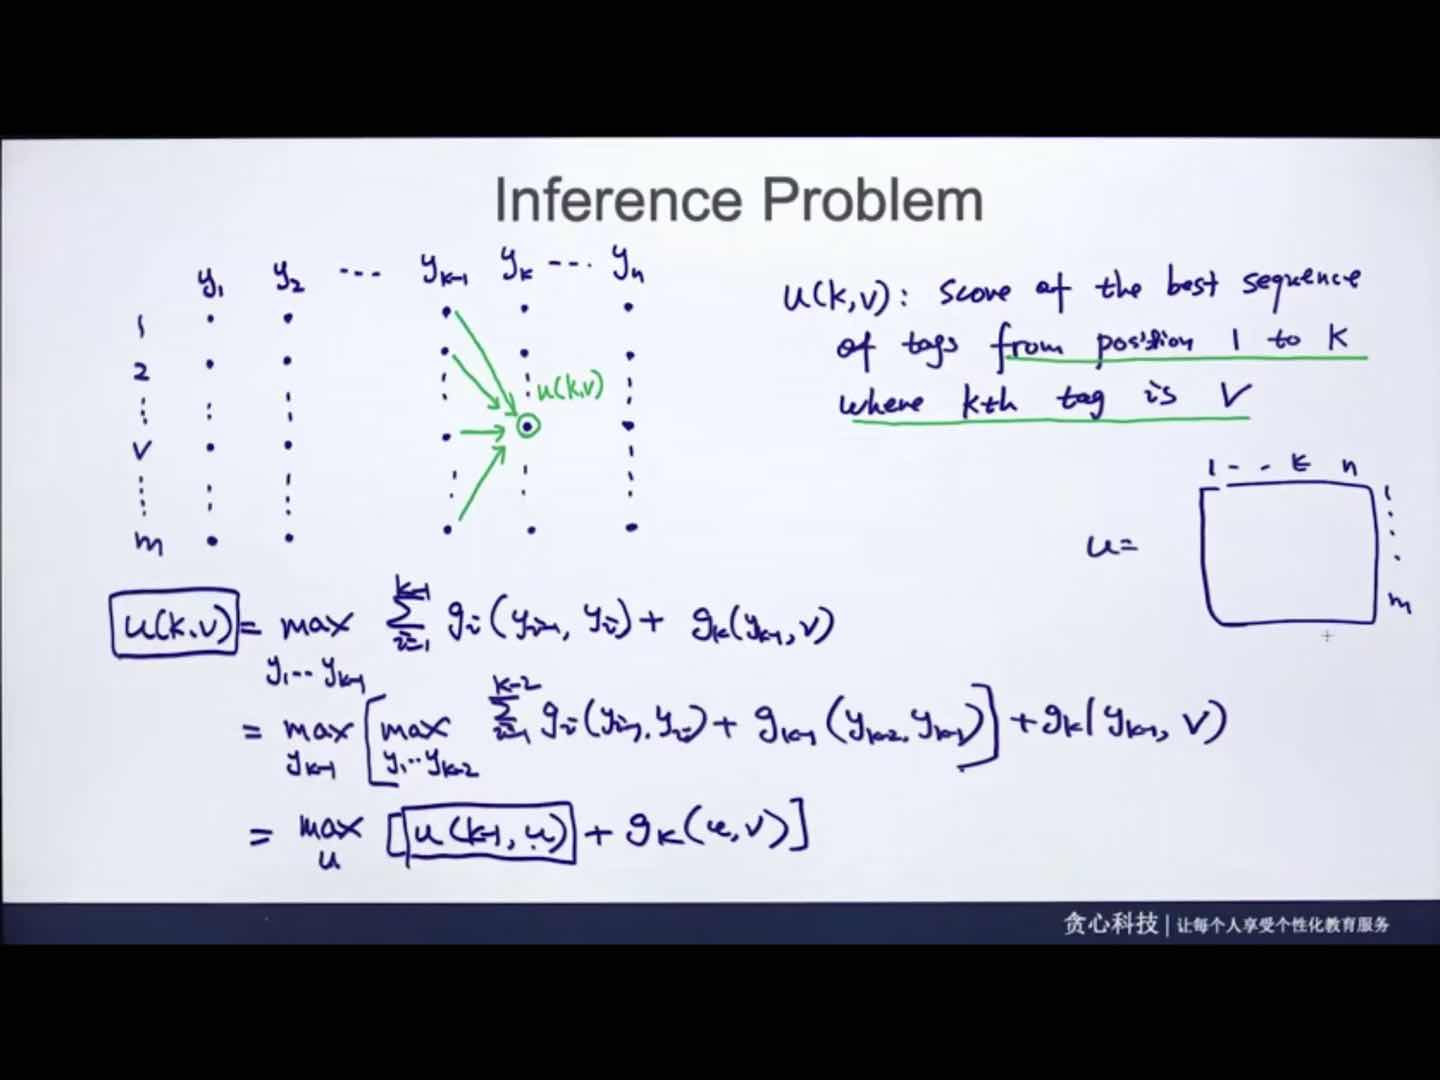 Inference Problem
y₁ y₂ ... yₖ₋₁ yₖ ... yₙ
1
2
v
m
u(k,v)
u(k,v): score of the best sequence
of tags from position 1 to k
where kth tag is v
1 - - k n
1
m
u=
u(k,v) = max Σ gᵢ(yᵢ₋₁, yᵢ) + gₖ(yₖ₋₁, v)
y₁...yₖ₋₁ i=1 k-1
= max [max Σ gᵢ(yᵢ₋₁, yᵢ) + gₖ₋₁(yₖ₋₂, yₖ₋₁)] + gₖ(yₖ₋₁, v)
yₖ₋₁ y₁...yₖ₋₂ i=1 k-2
= max [u(k-1, u) + gₖ(u, v)]
u
贪心科技 | 让每个人享受个性化教育服务